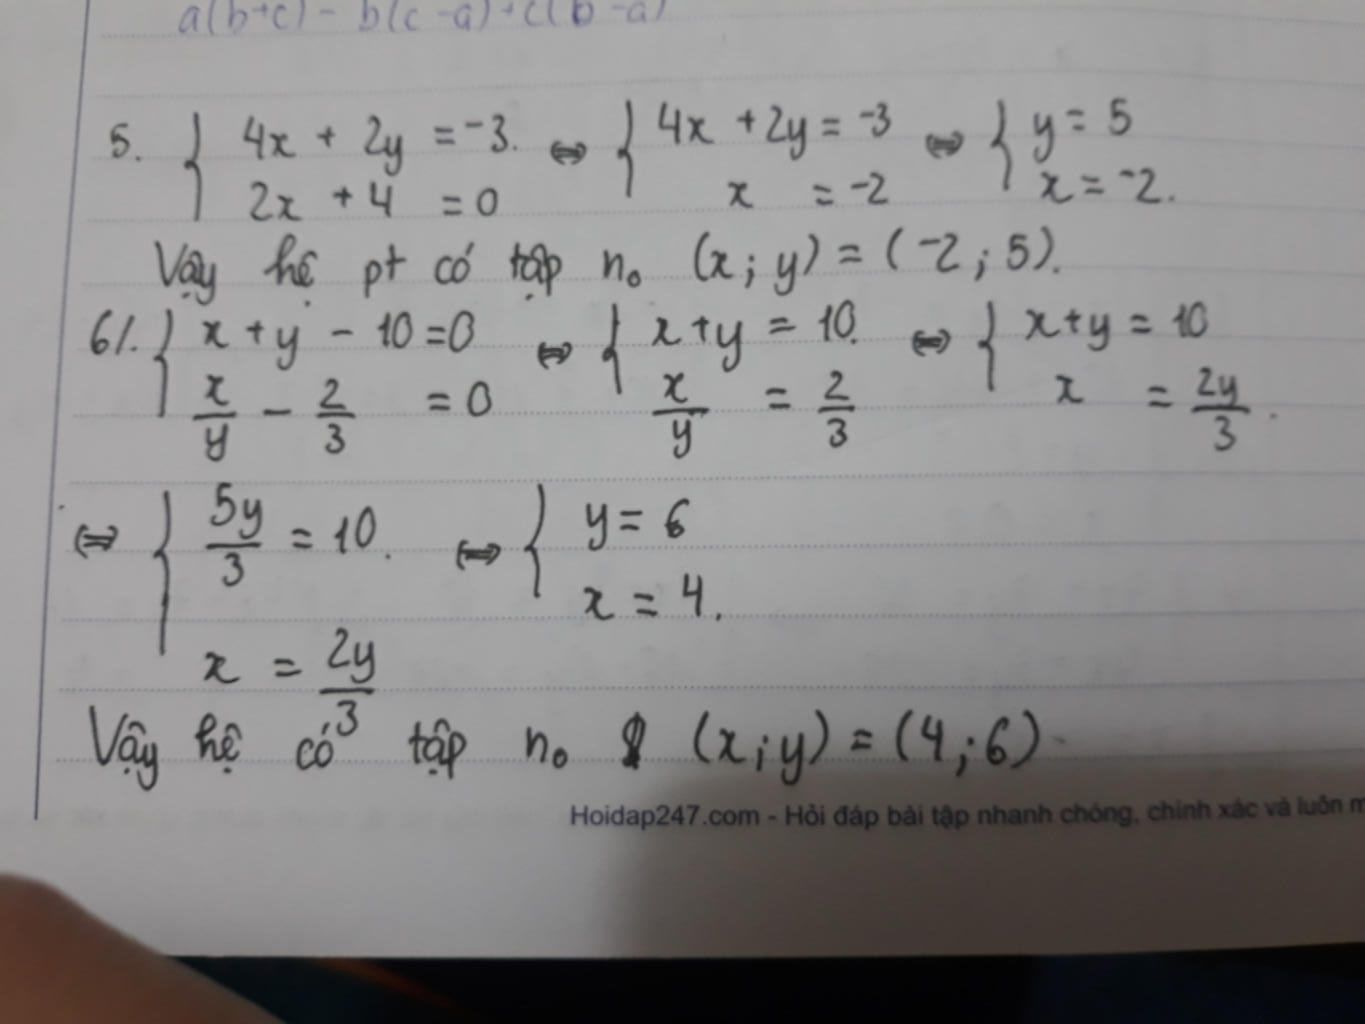 a(b+c) - b(c-a) + c(b-a)
5. { 4x + 2y = -3. ⇔ { 4x + 2y = -3 ⇔ { y = 5
2x + 4 = 0 x = -2 x = -2.
Vậy hệ pt có tập n₀ (x; y) = (-2; 5).
6/. { x + y - 10 = 0 ⇔ { x + y = 10. ⇔ { x + y = 10
x/y - 2/3 = 0 x/y = 2/3 x = 2y/3.
⇔ { 5y/3 = 10. ⇔ { y = 6
x = 4.
x = 2y/3
Vậy hệ có tập n₀ (x; y) = (4; 6)
Hoidap247.com - Hỏi đáp bài tập nhanh chóng, chính xác và luôn m